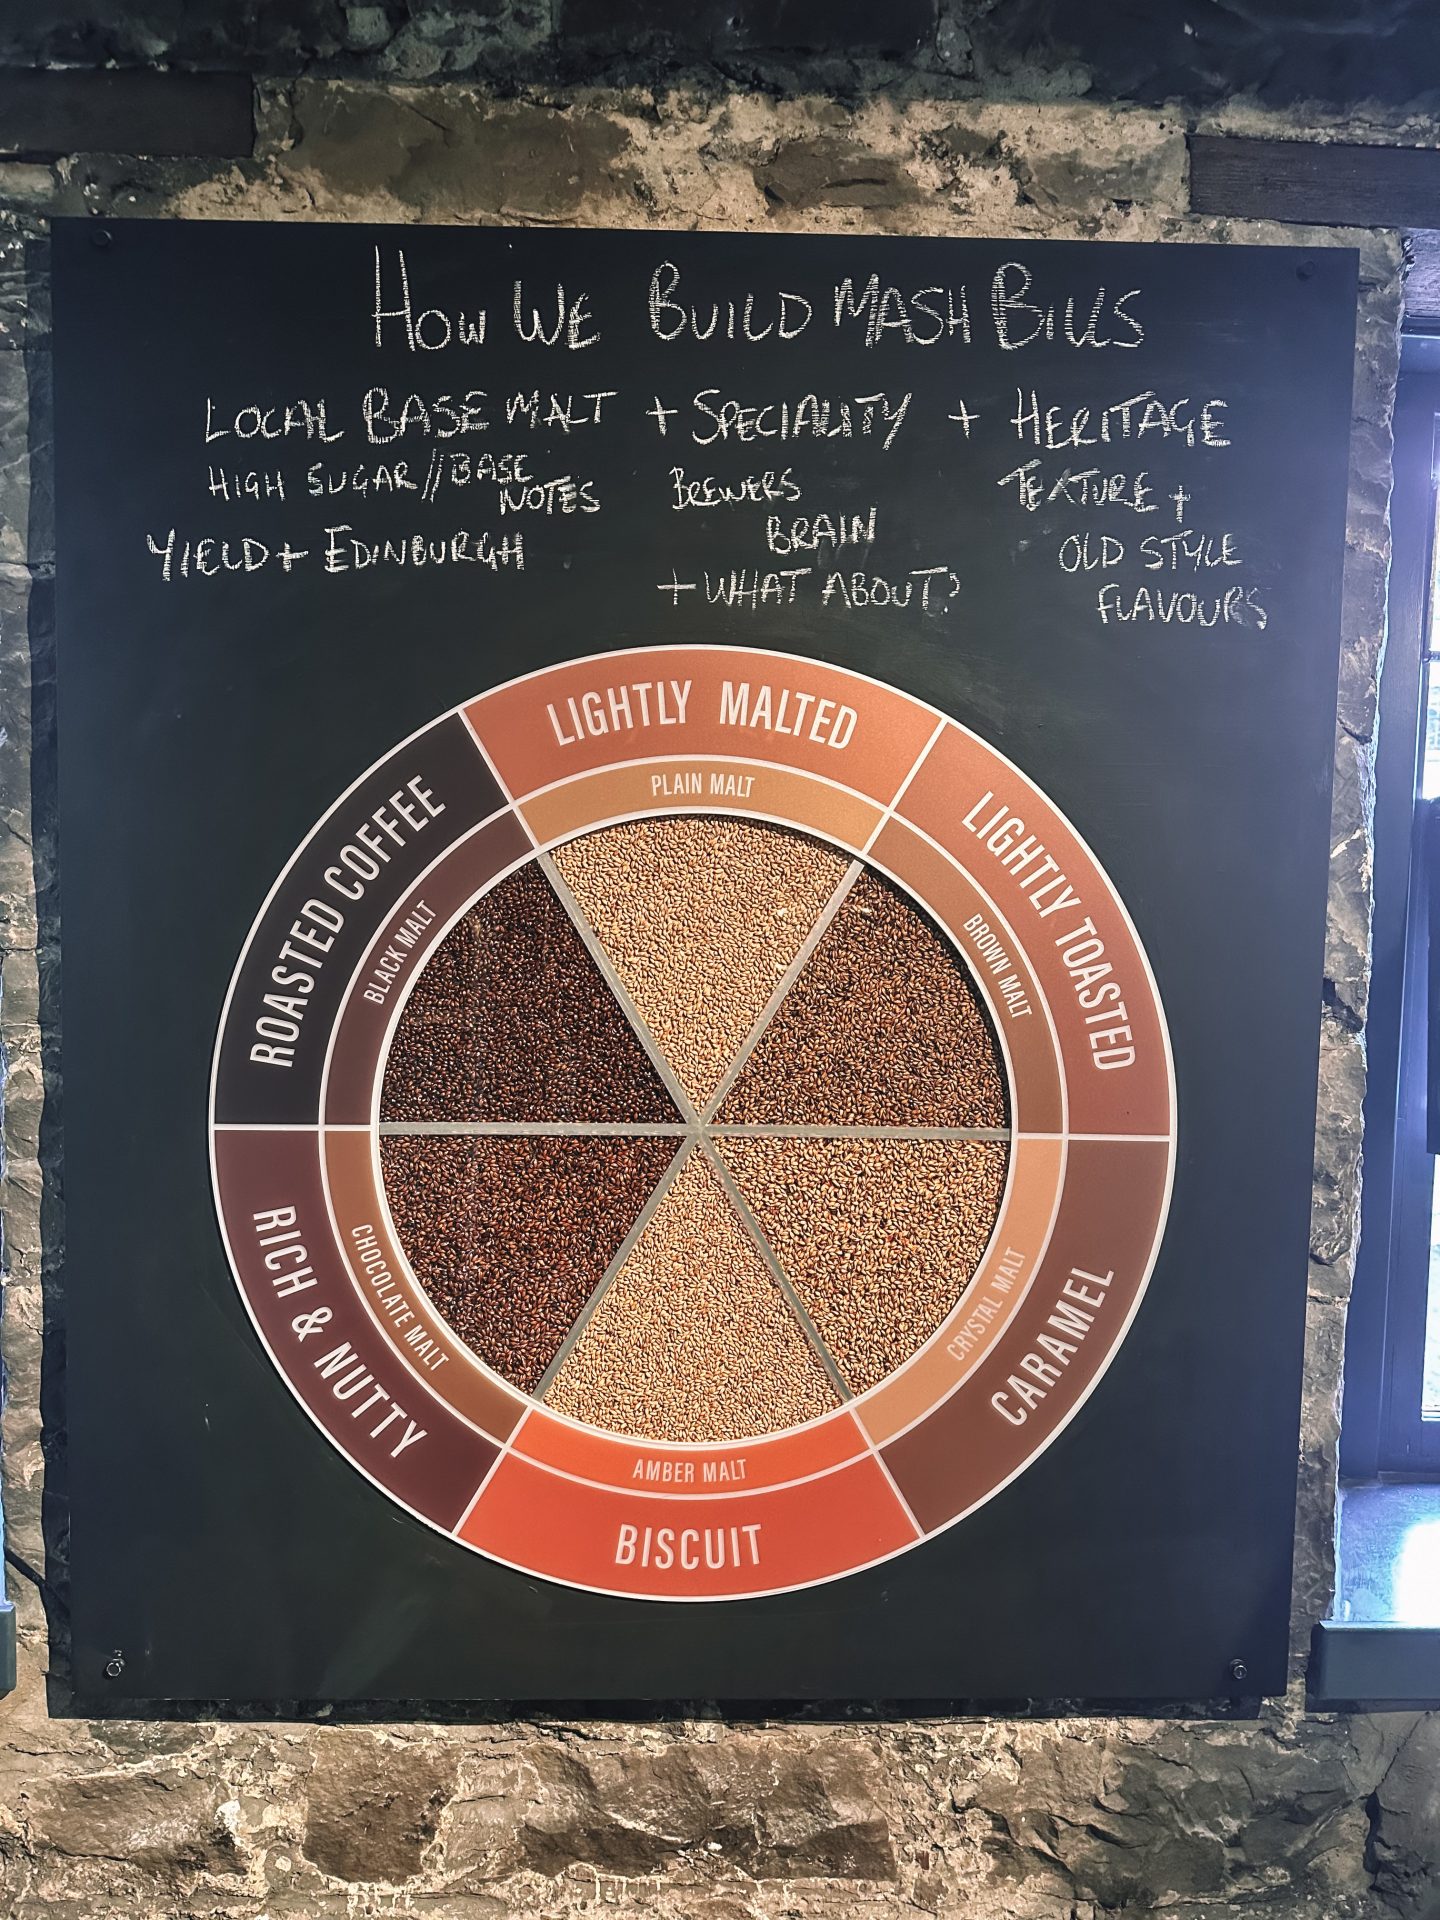 How We Build Mash Bills
LOCAL BASE MALT + SPECIALITY + HERITAGE
HIGH SUGAR//BASE NOTES
YIELD + EDINBURGH
BREWERS
BRAIN
+ WHAT ABOUT?
TEXTURE +
OLD STYLE
FLAVOURS
LIGHTLY MALTED
PLAIN MALT
LIGHTLY TOASTED
BROWN MALT
CARAMEL
CRYSTAL MALT
BISCUIT
AMBER MALT
RICH & NUTTY
CHOCOLATE MALT
ROASTED COFFEE
BLACK MALT